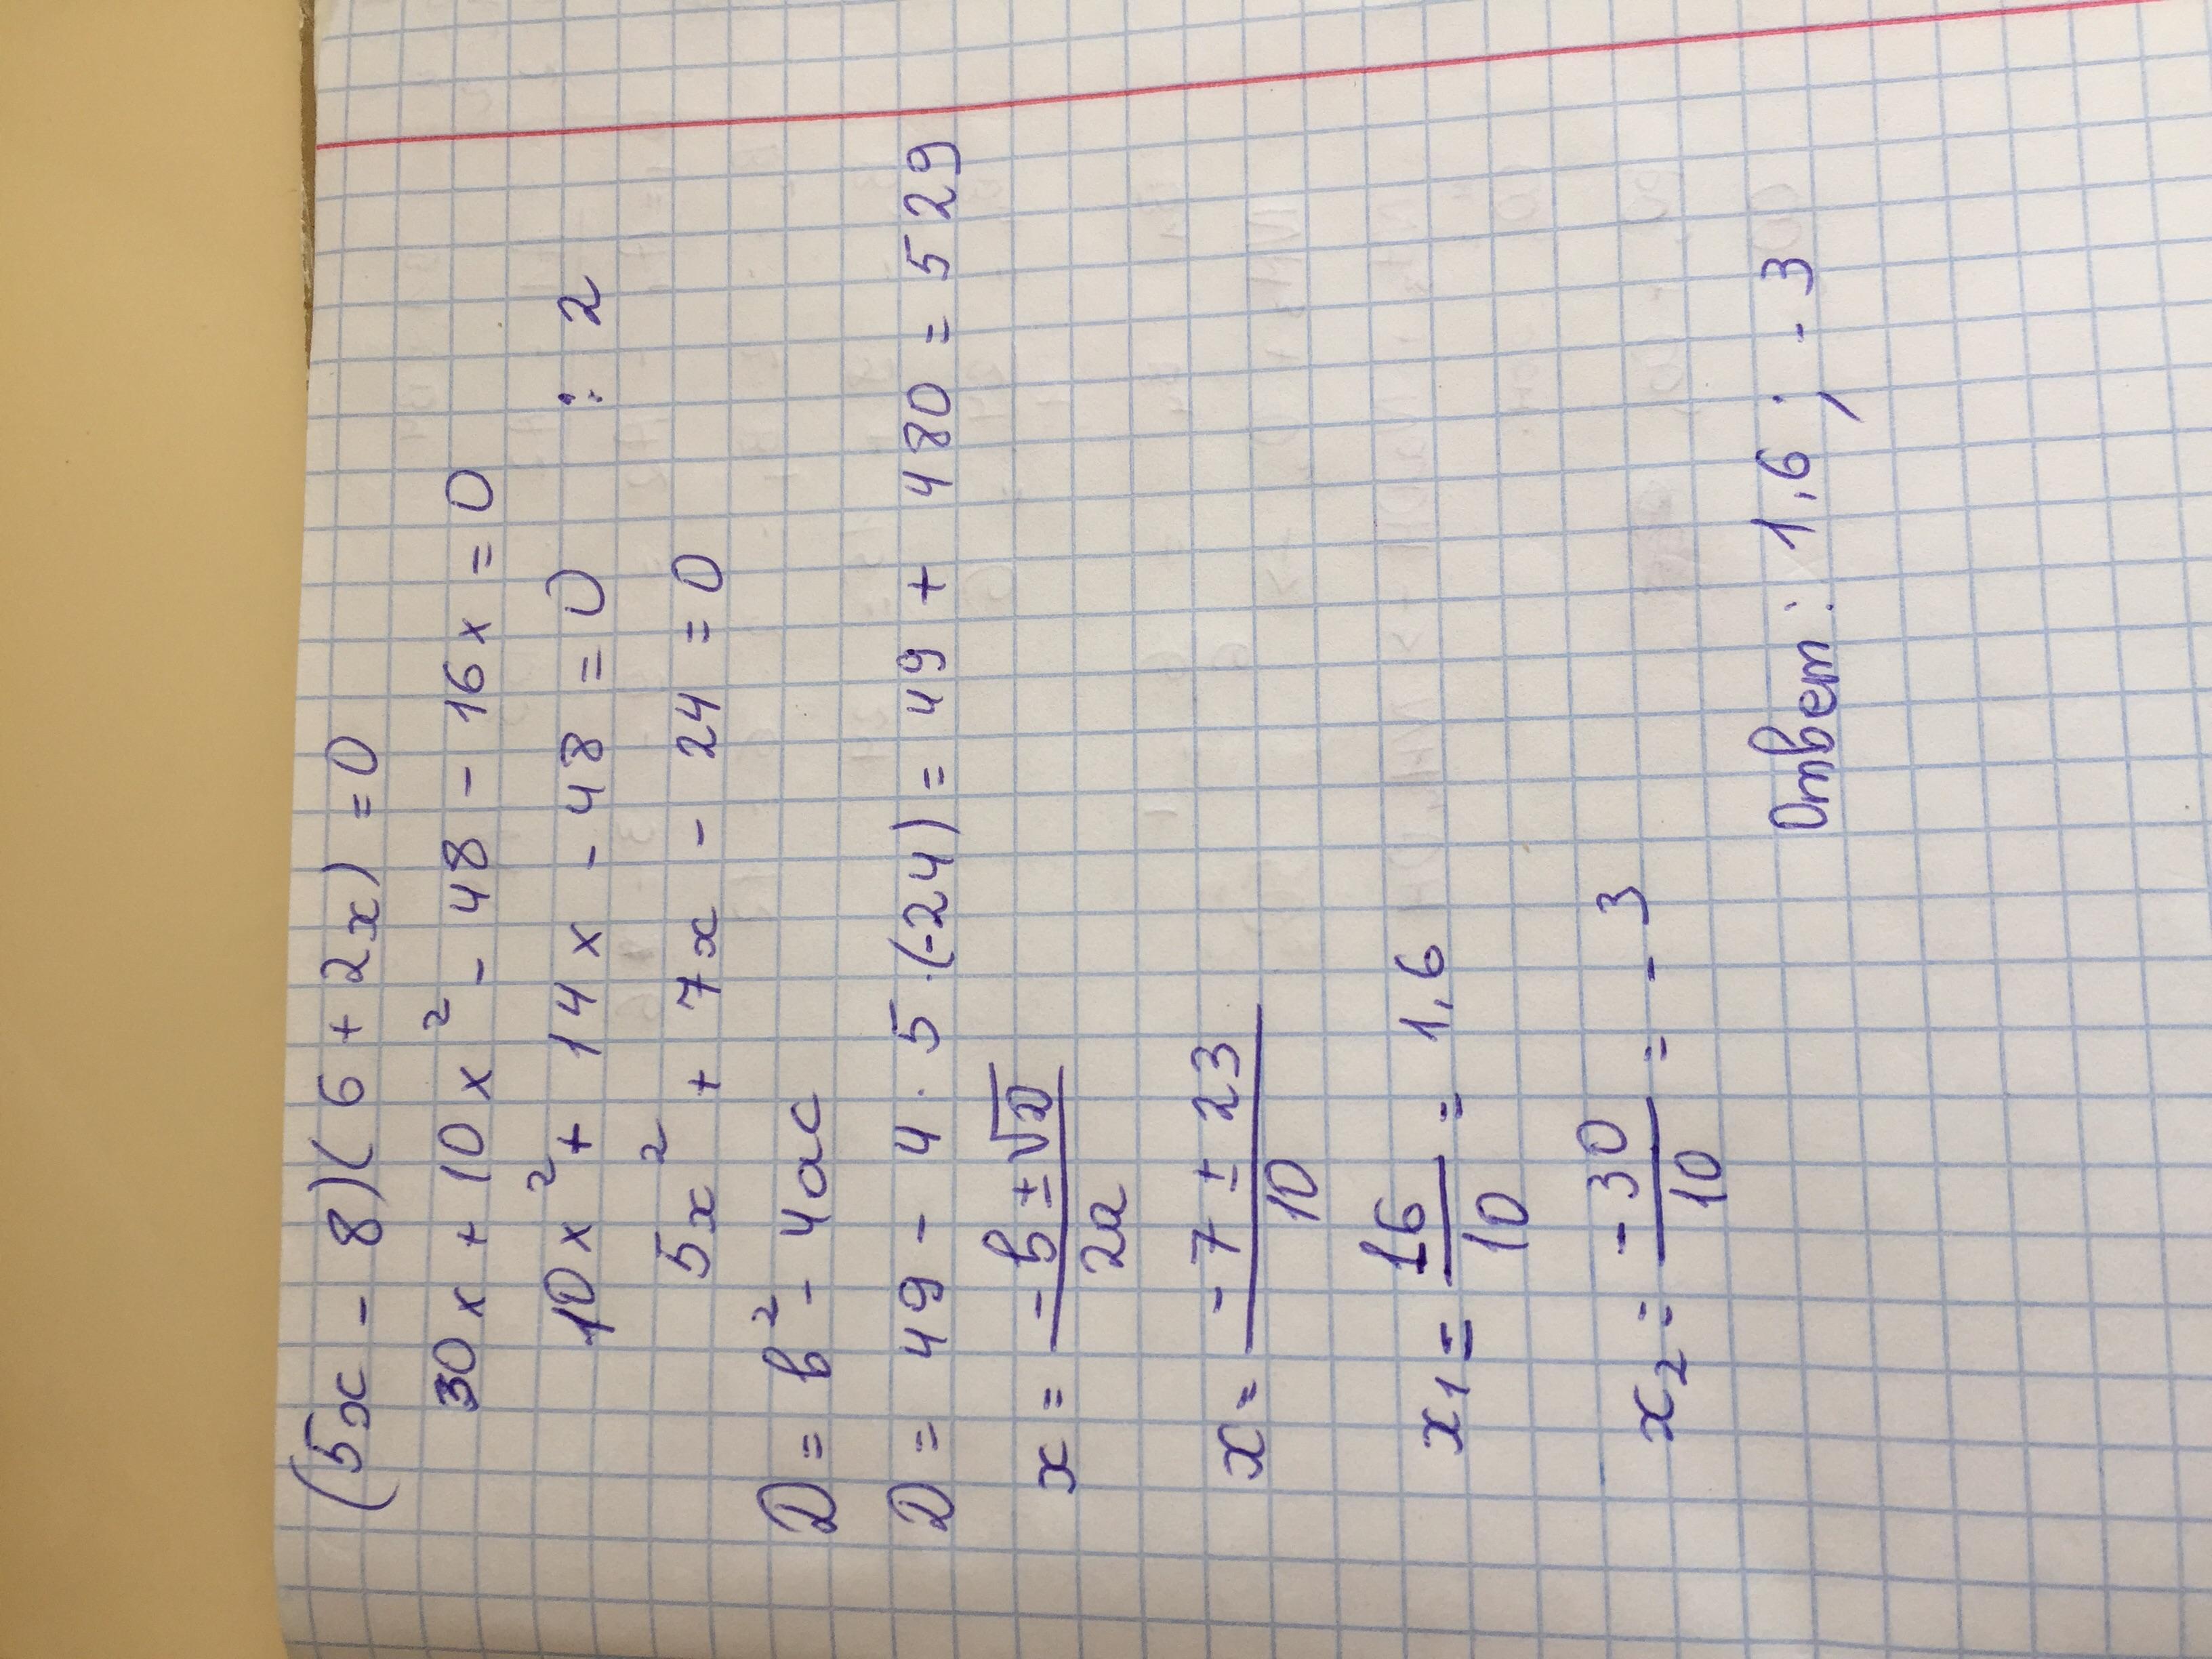 (5x - 8)(6 + 2x) = 0
30x + 10x² - 48 - 16x = 0
10x² + 14x - 48 = 0 : 2
5x² + 7x - 24 = 0
D = b² - 4ac
D = 49 - 4 · 5 · (-24) = 49 + 480 = 529
x = (-b ± √D) / 2a
x = (-7 ± 23) / 10
x₁ = 16/10 = 1,6
x₂ = -30/10 = -3
Ответ: 1,6 ; -3